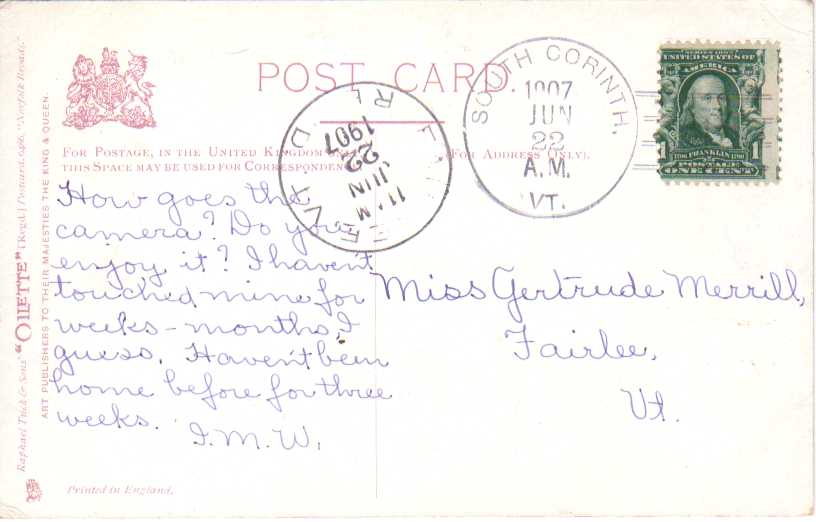 POST CARD.
FOR POSTAGE, IN THE UNITED KINGDOM
(FOR ADDRESS ONLY).
THIS SPACE MAY BE USED FOR CORRESPONDENCE
SOUTH CORINTH,
1907
JUN
22
A.M.
VT.
R D
1907
22
JUN
11 M
SERIES 1902
UNITED STATES OF
AMERICA
1706 FRANKLIN 1790
1 1
POSTAGE
ONE CENT
How goes the
camera? Do you
enjoy it? I haven't
touched mine for
weeks - months, I
guess. Haven't been
home before for three
weeks.
I.M.W.
Miss Gertrude Merrill,
Fairlee,
Vt.
Raphael Tuck & Sons' "OILETTE" [Regd.] Postcard 6496. "Norfolk Broads."
ART PUBLISHERS TO THEIR MAJESTIES THE KING & QUEEN.
Printed in England.